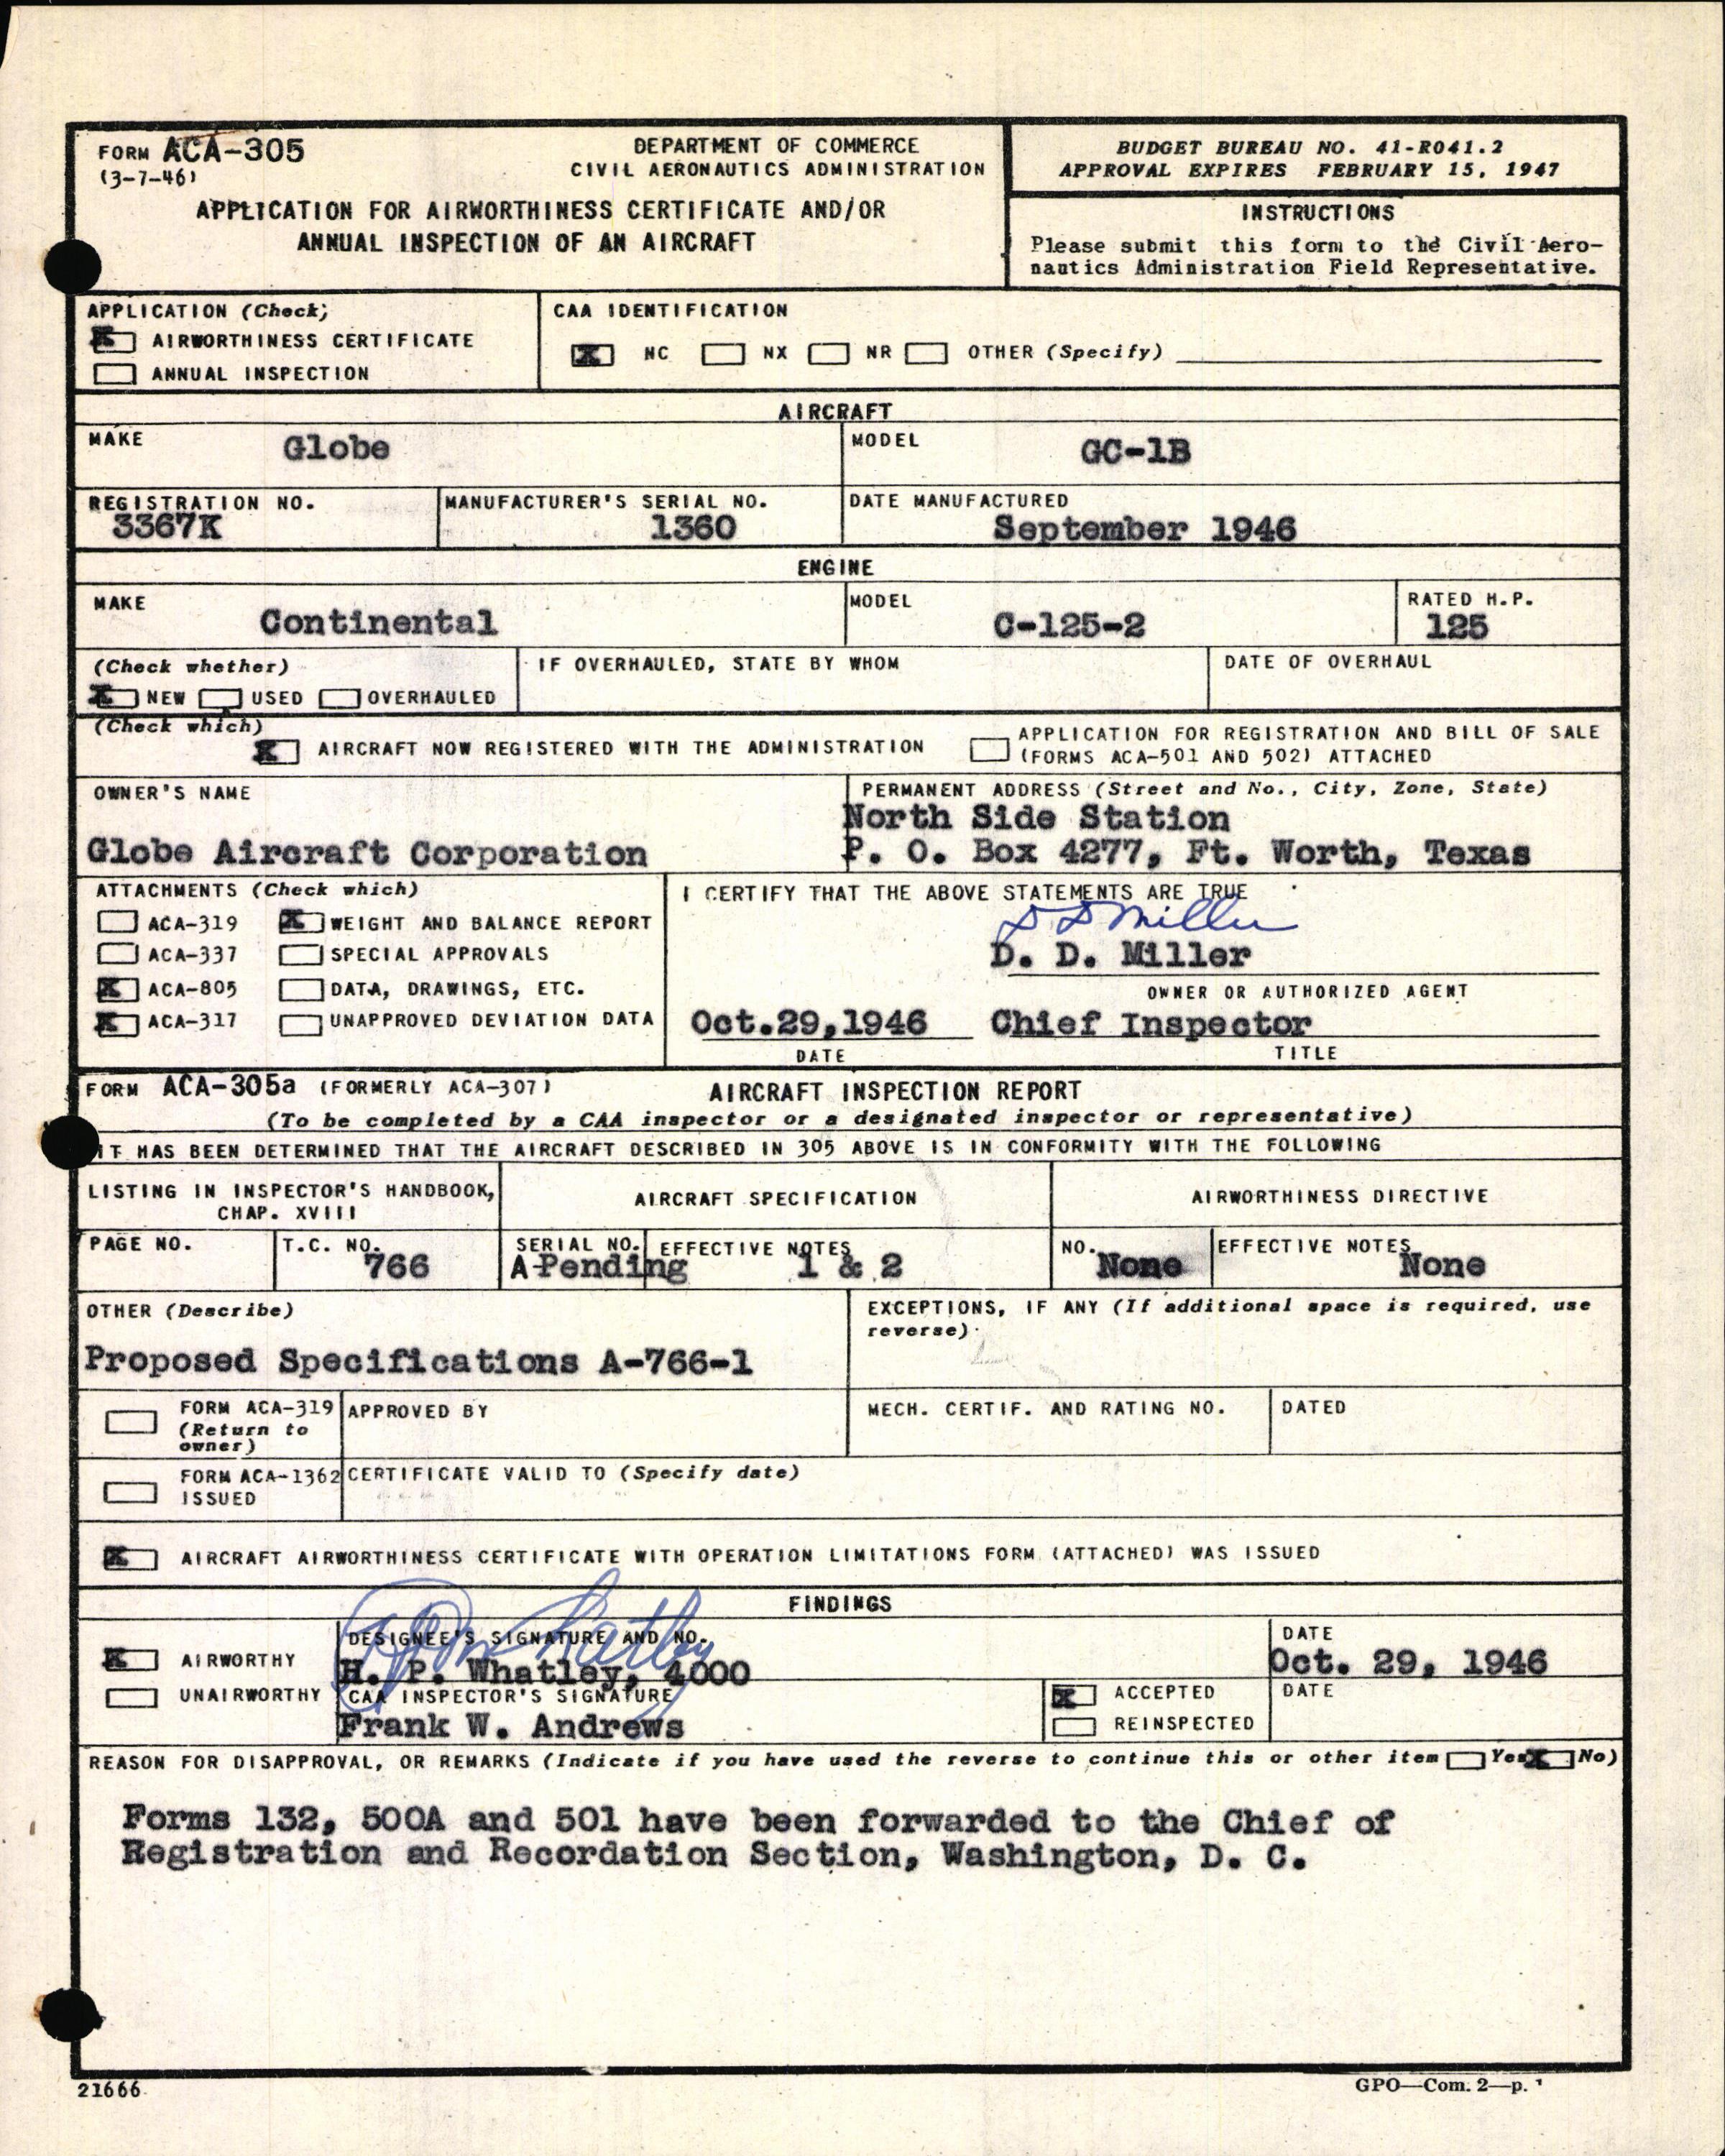 FORM ACA-305
(3-7-46)
DEPARTMENT OF COMMERCE
CIVIL AERONAUTICS ADMINISTRATION
APPLICATION FOR AIRWORTHINESS CERTIFICATE AND/OR
ANNUAL INSPECTION OF AN AIRCRAFT
BUDGET BUREAU NO. 41-R041.2
APPROVAL EXPIRES FEBRUARY 15, 1947
INSTRUCTIONS
Please submit this form to the Civil Aero-
nautics Administration Field Representative.
APPLICATION (Check)
X AIRWORTHINESS CERTIFICATE
ANNUAL INSPECTION
CAA IDENTIFICATION
X NC NX NR OTHER (Specify)
AIRCRAFT
MAKE Globe
MODEL GC-1B
REGISTRATION NO. 3367K
MANUFACTURER'S SERIAL NO. 1360
DATE MANUFACTURED September 1946
ENGINE
MAKE Continental
MODEL C-125-2
RATED H.P. 125
(Check whether)
X NEW USED OVERHAULED
IF OVERHAULED, STATE BY WHOM
DATE OF OVERHAUL
(Check which)
X AIRCRAFT NOW REGISTERED WITH THE ADMINISTRATION
APPLICATION FOR REGISTRATION AND BILL OF SALE
(FORMS ACA-501 AND 502) ATTACHED
OWNER'S NAME
Globe Aircraft Corporation
PERMANENT ADDRESS (Street and No., City, Zone, State)
North Side Station
P. O. Box 4277, Ft. Worth, Texas
ATTACHMENTS (Check which)
ACA-319 X WEIGHT AND BALANCE REPORT
ACA-337 SPECIAL APPROVALS
X ACA-805 DATA, DRAWINGS, ETC.
X ACA-317 UNAPPROVED DEVIATION DATA
I CERTIFY THAT THE ABOVE STATEMENTS ARE TRUE
D D Miller
D. D. Miller
OWNER OR AUTHORIZED AGENT
Oct.29,1946 Chief Inspector
DATE TITLE
FORM ACA-305a (FORMERLY ACA-307) AIRCRAFT INSPECTION REPORT
(To be completed by a CAA inspector or a designated inspector or representative)
IT HAS BEEN DETERMINED THAT THE AIRCRAFT DESCRIBED IN 305 ABOVE IS IN CONFORMITY WITH THE FOLLOWING
LISTING IN INSPECTOR'S HANDBOOK,
CHAP. XVIII
AIRCRAFT SPECIFICATION
AIRWORTHINESS DIRECTIVE
PAGE NO.
T.C. NO. 766
SERIAL NO. A-Pending
EFFECTIVE NOTES 1 & 2
NO. None
EFFECTIVE NOTES None
OTHER (Describe)
Proposed Specifications A-766-1
EXCEPTIONS, IF ANY (If additional space is required, use
reverse)
FORM ACA-319
(Return to
owner)
APPROVED BY
MECH. CERTIF. AND RATING NO.
DATED
FORM ACA-1362
ISSUED
CERTIFICATE VALID TO (Specify date)
X AIRCRAFT AIRWORTHINESS CERTIFICATE WITH OPERATION LIMITATIONS FORM (ATTACHED) WAS ISSUED
FINDINGS
X AIRWORTHY
UNAIRWORTHY
DESIGNEE'S SIGNATURE AND NO.
H P Whatley
H. P. Whatley, 4000
DATE
Oct. 29, 1946
CAA INSPECTOR'S SIGNATURE
Frank W. Andrews
X ACCEPTED
REINSPECTED
DATE
REASON FOR DISAPPROVAL, OR REMARKS (Indicate if you have used the reverse to continue this or other item Yes X No)
Forms 132, 500A and 501 have been forwarded to the Chief of
Registration and Recordation Section, Washington, D. C.
21666
GPO—Com. 2—p.